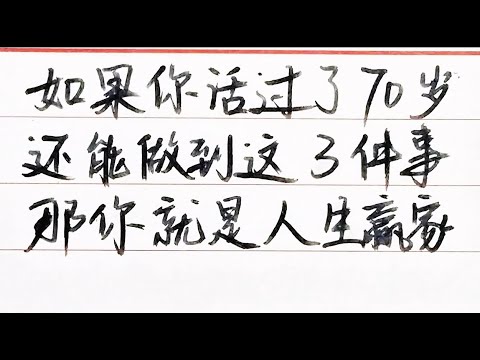 如果你活过了70岁
还能做到这3件事
那你就是人生赢家